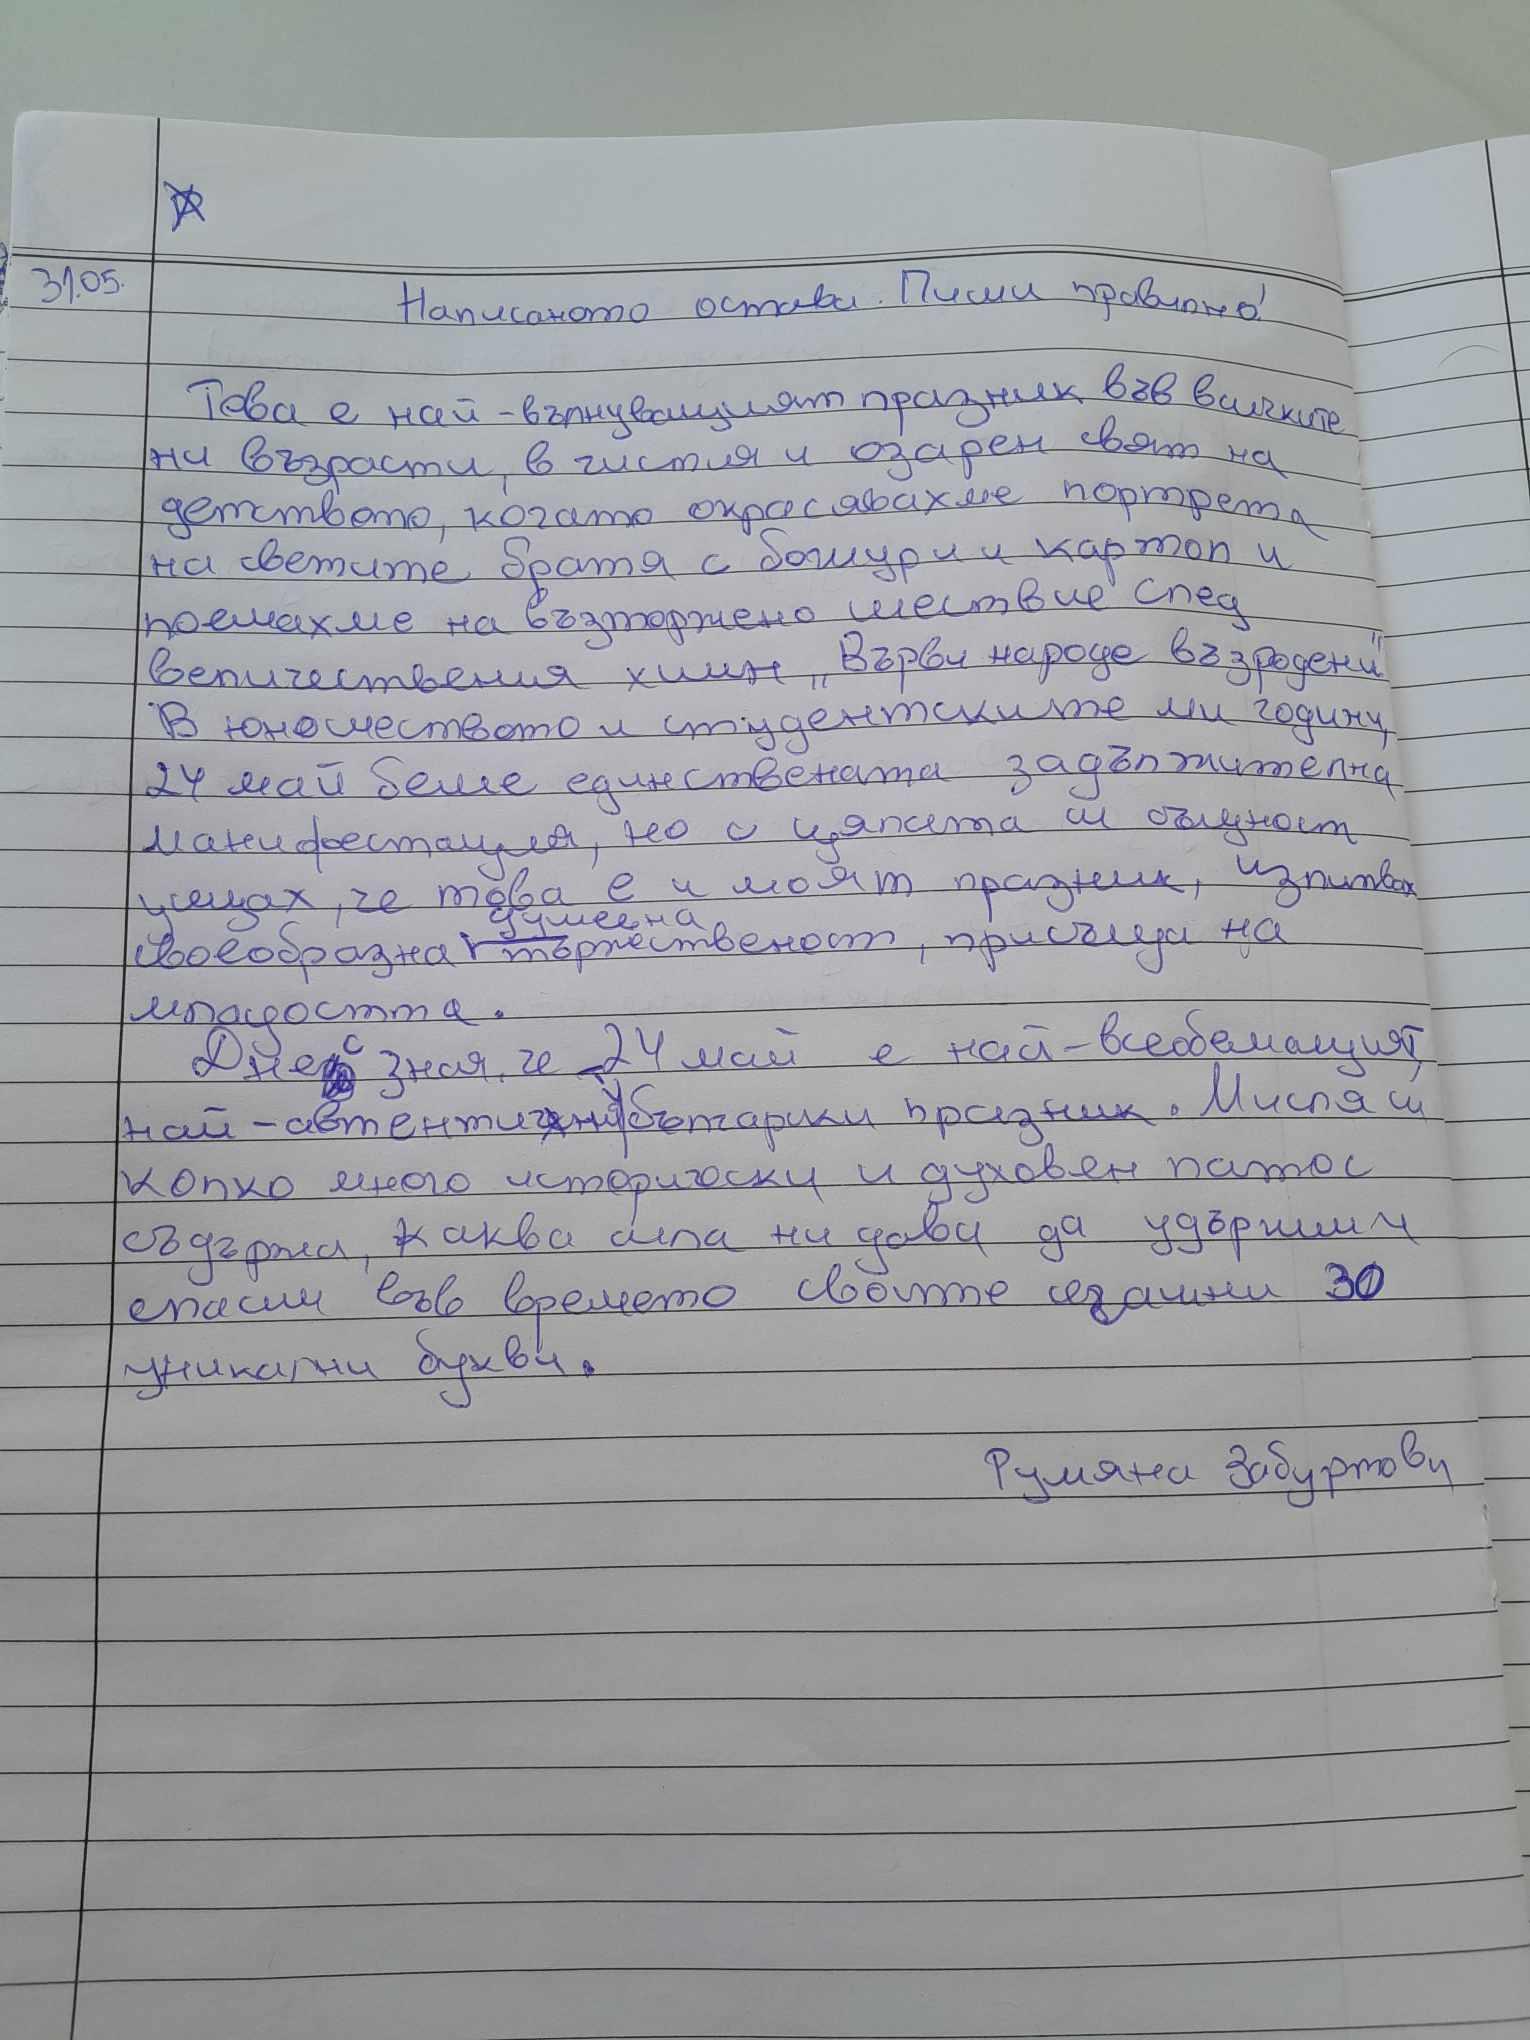 31.05.
Написаното остава. Пиши правилно!
Това е най-вълнуващият празник във всичките
ни възрасти, в чистия и озарен свят на
детството, когато окрасявахме портрета
на светите братя с божури и картоп и
поемахме на възторжено шествие след
величествения химн „Върви народе възродени"
В юношеството и студентските ми години,
24 май беше единствената задължителна
манифестация, но с цялата си същност
усещах, че това е и моят празник, изпитвах
душевна
своеобразна тържественост, присъща на
младостта.
Днес зная, че 24 май е най-всеобемащият,
най-автентичният български празник. Мисля си
колко много исторически и духовен патос
съдържа, каква сила ни дава да удържим и
спасим във времето своите сегашни 30
уникални букви.
Румяна Забуртова